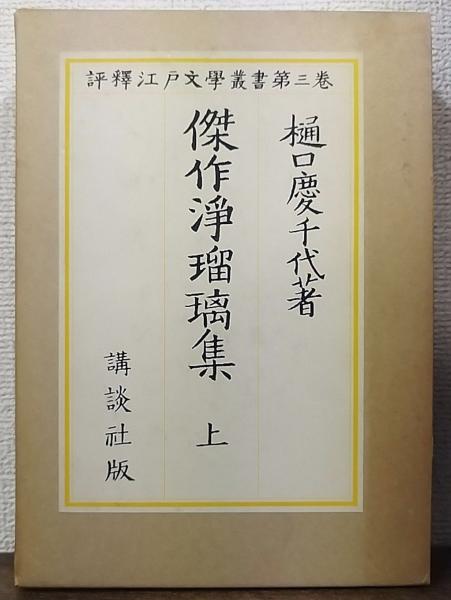 評釋江戸文學叢書第三卷
樋口慶千代著
傑作淨瑠璃集 上
講談社版